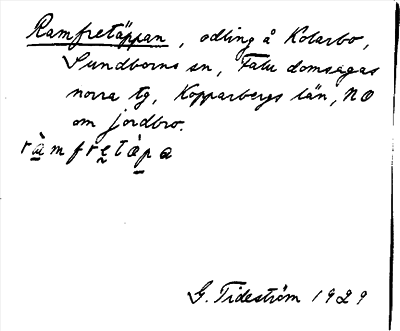 Ramfretäppan, odling å Kolarbo,
Sundborns sn, Falu domsagas
norra tg, Kopparbergs län, NO
om jordbro.
ràmfretàpa
G. Tideström 1929